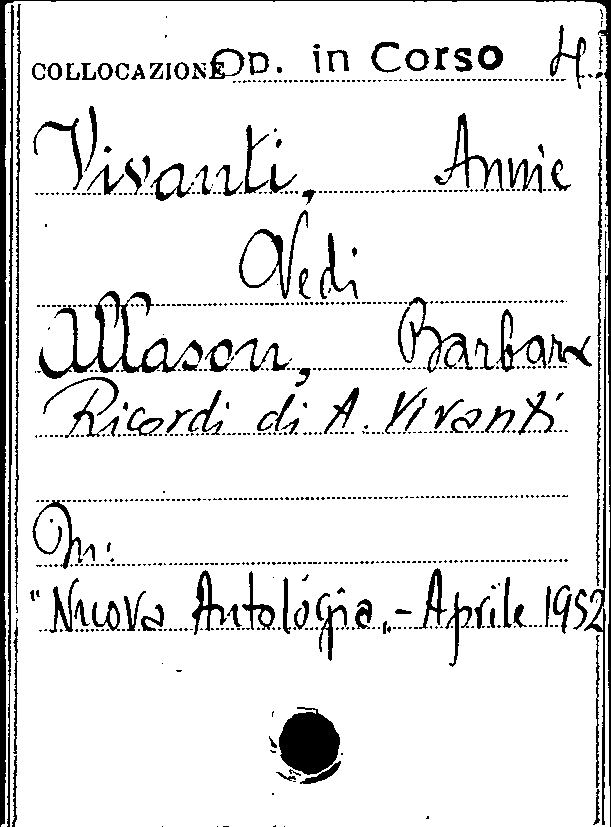 COLLOCAZIONE Op. in Corso 4.
Vivanti, Annie
Vedi
Allason, Barbara
Ricordi di A. Vivanti
In:
"Nuova Antologia„ - Aprile 1952